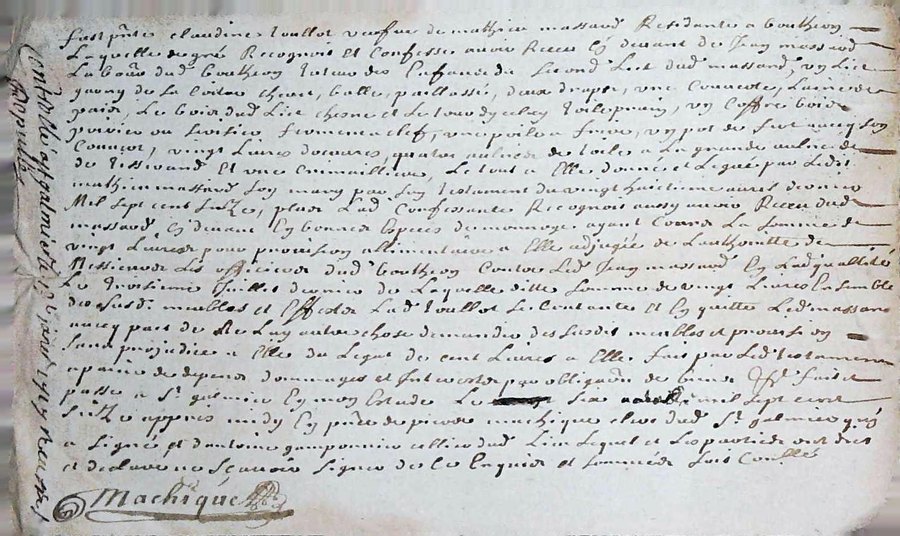 fust pnte claudine Voullot veufve de mathieu massard Residante a Bouthéon
Laquelle de gré Recognoit Et Confesse avoir Receu Cy devant de Jean massard
Labour dud bouthéon tuteur des Enfans du second Lict dud massard, un Lict
garny de sa Coitre chevet, balle, paillasse, deux draps, une Couverte, Laine de
pais, Le bois dud Lict chesne et Le tour de toile, un Coffre bois
fermant a clef, une poile a frire, un pot de fert avec son
Couvert, vingt Livres d'oeuvres, quatre aulnes de toile a La grande aulne de
de tisserand Et une Cremaillere, Le tout a Elle donné et Legué par Ledit
mathieu massard son mary par son testament du vingt huictieme avril dernier
Mil sept cent seize, plus Lad Confessante Recognoit aussy avoir Receu dud
massard Cy devant En bonnes Especes de monnoye ayant Cours La somme de
vingt Livres pour provision alimentaire a Elle adjugée de L'authoritté de
Messieurs Les officiers dud bouthéon Contre Led Jean massard En Lad qualitté
Le troisieme Juillet dernier de Laquelle ditte somme de vingt Livres Ensemble
des susd meubles et Effects Lad Voullot se Contante et En quitte Led massard
avec pact de ne Luy autre chose demander des susdits meubles et provision
sans prejudice a Elle du Legat de cent Livres a Elle fait par Led testament
a peine de depens dommages et Interests par obligaon de biens fait et
passé a St galmier En mon Estude Le six mil sept cent
seize appres midy En pnce de pierre machique clerc dud St galmier qui
a signé et d'antoine cellier dud Lieu Lequel et Les parties ont dict
et declare ne sçavoir signer de Ce Enquis et sommées
Machique
Controllé a St galmier Le 1716 Receu